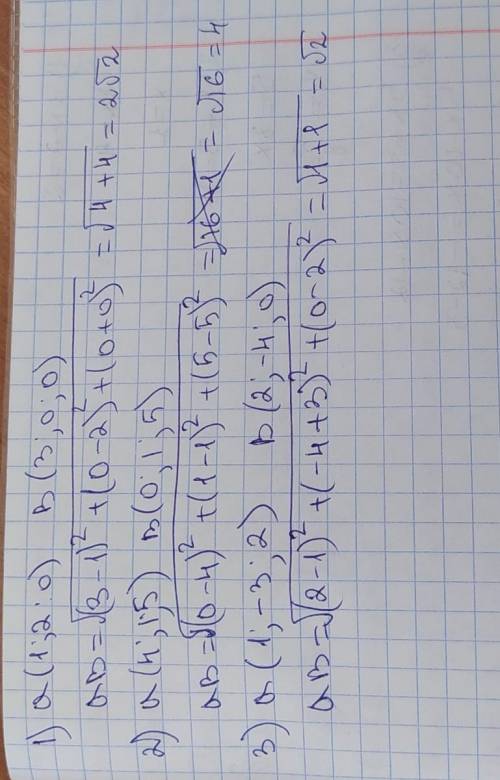 1) a(1;2;0) B(3;0;0)
aB=√(3-1)²+(0-2)²+(0+0)² =√4+4 = 2√2
2) a(4;1;5) B(0;1;5)
aB=√(0-4)²+(1-1)²+(5-5)² =√16+1 = √16 = 4
3) a(1;-3;2) B(2;-4;0)
aB=√(2-1)²+(-4+3)²+(0-2)² =√1+1 = √2